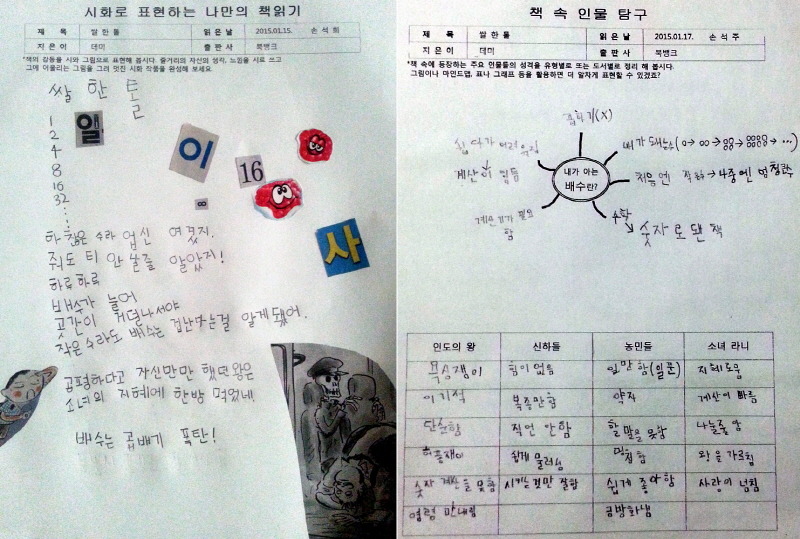 시화로 표현하는 나만의 책읽기
제 목 쌀 한 톨 읽 은 날 2015.01.15. 손 석 희
지 은 이 데미 출 판 사 북뱅크
*책의 감동을 시와 그림으로 표현해 봅시다. 줄거리와 자신의 생각, 느낌을 시로 쓰고
그에 어울리는 그림을 그려 멋진 시화 작품을 완성해 보세요.
쌀 한 톨
1
2
4
8
16
32
일
이
16
8
사
하찮은 수라 업신 여겼지.
줘도 티 안 날줄 알았지!
하루하루
배수가 늘어
곳간이 거덜나서야
작은 수라도 배수는 겁난다는걸 알게 됐어.
공평하다고 자신만만 했던 왕은
소녀의 지혜에 한방 먹었네
배수는 곱배기 폭탄!
책 속 인물 탐구
제 목 쌀 한 톨 읽 은 날 2015.01.17. 손 석 주
지 은 이 데미 출 판 사 북뱅크
*책 속에 등장하는 주요 인물들의 성격을 유형별로 또는 도서별로 정리 해 봅시다.
그림이나 마인드맵, 표나 그래프 등을 활용하면 더 알차게 표현할 수 있겠죠?
곱하기(X)
계산이 힘듬
내가 아는
배수란?
계산기가 필요
함
수학
숫자로 된 책
인도의 왕 신하들 농민들 소녀 라니
욕심쟁이 힘이 없음 일만 함(일꾼) 지혜로움
이기적 복종만함 약자 계산이 빠름
단순함 직언 안함 할 말을 못함 나눌줄 암
허풍쟁이 쉽게 물러섬 멍청함 왕을 가르침
숫자 계산을 못함 시키는것만 잘함 쉽게 좋아함 사랑이 넘침
명령만 내림 금방화냄